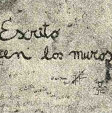 Escrito
en los muros